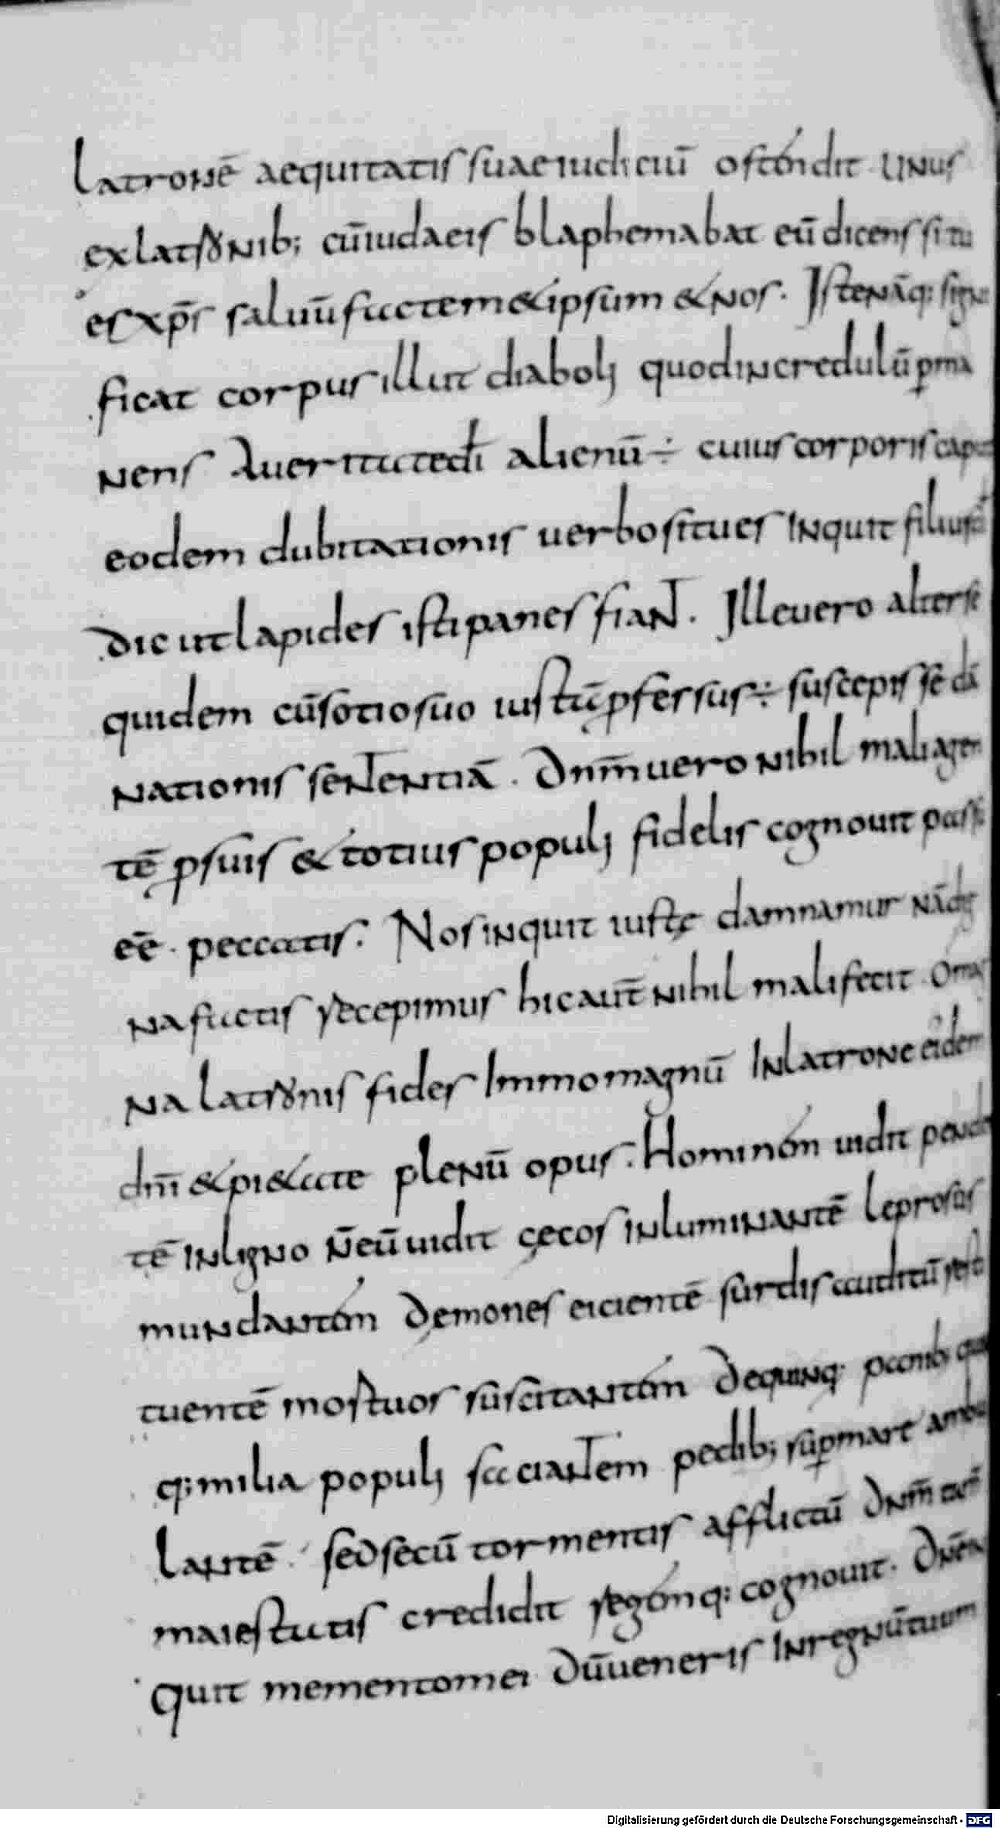 latronē aequitatis suae iudiciū ostendit unus
ex latronib; cū iudaeis blaphemabat eū dicens si tu
es xp̄s saluū fac temet ipsum et nos. Iste nāq: signi
ficat corpus illut diaboli quod incredulū p̄ma
nens a uertute dī alienū ÷ cuius corporis caput
eodem dubitationis uerbositaes inquit filius dī
dic ut lapides isti panes fiant. Ille uero alter se
quidem cū sotio suo iustū p̄fessus ÷ suscepisse dā
nationis sententiā. Dn̄m uero nihil mali agen
tē p̄ suis et totius populi fidelis cognouit passū
eē. peccatis. Nos inquit iuste damnamur nā dig
na factis recepimus hic aut̄ nihil mali fecit. O mag
na latronis fides Immo magnū In latrone eidem
dn̄i et pietate plenū opus. Hominem uidit penden
tē in ligno n̄ eū uidit cecos inluminantē leprosus
mundantem demones eicientē surdis auditū resti
tuentē mostuos suscitantem De quinq: panib; quin
q: milia populi saciantem pedib; sup̄ mare ambu
lantē. sed secū tormentis afflictū dn̄m tam̄
maiestatis credidit regemq: cognouit. Dn̄e in
quit memento mei dū ueneris In regnū tuum
Digitalisierung gefördert durch die Deutsche Forschungsgemeinschaft - DFG